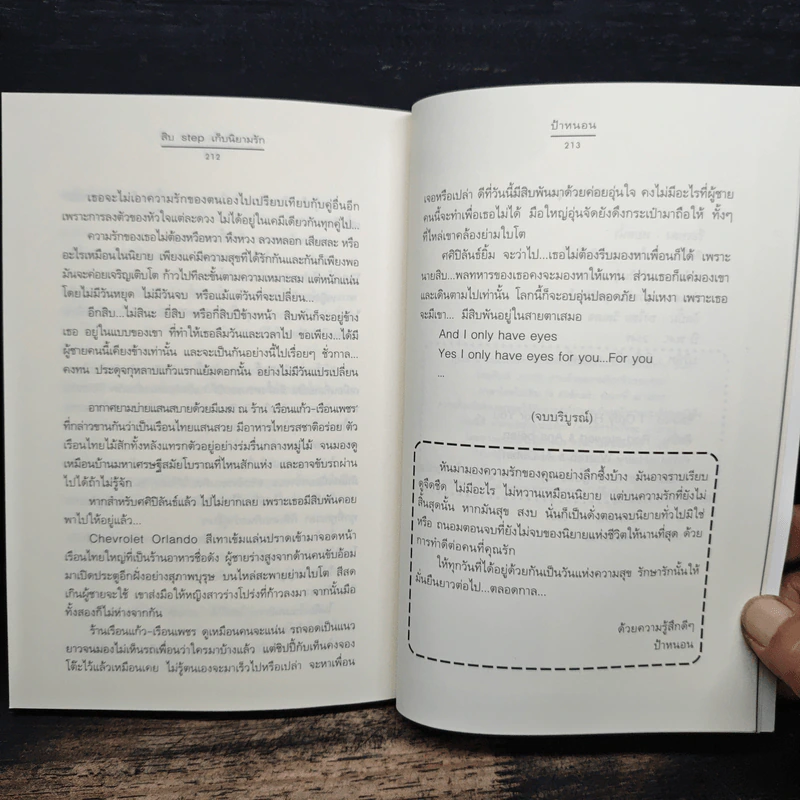 สิบ step เก็บนิยามรัก
212
เธอจะไม่เอาความรักของตนเองไปเปรียบเทียบกับคู่อื่นอีก
เพราะการลงตัวของหัวใจแต่ละดวง ไม่ได้อยู่ในเคมีเดียวกันทุกคู่ไป...
ความรักของเธอไม่ต้องหรือหวา หึงหวง ลวงหลอก เสียสละ หรือ
อะไรเหมือนในนิยาย เพียงแค่มีความสุขที่ได้รักกันและกันก็เพียงพอ
มันจะค่อยเจริญเติบโต ก้าวไปทีละขั้นตามความเหมาะสม แต่หนักแน่น
โดยไม่มีวันหยุด ไม่มีวันจบ หรือแม้แต่วันที่จะเปลี่ยน...
อีกสิบ...ไม่สินะ ยี่สิบ หรือกี่สิบปีข้างหน้า สิบพันก็จะอยู่ข้าง
เธอ อยู่ในแบบของเขา ที่ทำให้เธอลืมวันและเวลาไป ขอเพียง...ได้มี
ผู้ชายคนนี้เคียงข้างเท่านั้น และจะเป็นกันอย่างนี้ไปเรื่อยๆ ชั่วกาล...
คงทน ประดุจกุหลาบแก้วแรกแย้มดอกนั้น อย่างไม่มีวันแปรเปลี่ยน
อากาศยามบ่ายแสนสบายด้วยมีเมฆ ณ ร้าน 'เรือนแก้ว-เรือนเพชร'
ที่กล่าวขานกันว่าเป็นเรือนไทยแสนสวย มีอาหารไทยรสชาติอร่อย ตัว
เรือนไทยไม้สักทั้งหลังแทรกตัวอยู่อย่างร่มรื่นกลางหมู่ไม้ จนมองดู
เหมือนบ้านมหาเศรษฐีสมัยโบราณที่ไหนสักแห่ง และอาจขับรถผ่าน
ไปได้ถ้าไม่รู้จัก
หากสำหรับศศิปิลันธ์แล้ว ไปไม่ยากเลย เพราะเธอมีสิบพันคอย
พาไปให้อยู่แล้ว...
Chevrolet Orlando สีเทาเข้มแล่นปราดเข้ามาจอดหน้า
เรือนไทยใหญ่ที่เป็นร้านอาหารชื่อดัง ผู้ชายร่างสูงจากด้านคนขับอ้อม
มาเปิดประตูอีกฝั่งอย่างสุภาพบุรุษ บนไหล่สะพายย่ามใบโต สีสด
เกินผู้ชายจะใช้ เขาส่งมือให้หญิงสาวร่างโปร่งที่ก้าวลงมา จากนั้นมือ
ทั้งสองก็ไม่ห่างจากกัน
ร้านเรือนแก้ว-เรือนเพชร ดูเหมือนคนจะแน่น รถจอดเป็นแนว
ยาวจนมองไม่เห็นรถเพื่อนว่าใครมาบ้างแล้ว แต่ชิปปี้กับเท็นคงจอง
โต๊ะไว้แล้วเหมือนเคย ไม่รู้ตนเองจะมาเร็วไปหรือเปล่า จะหาเพื่อน
ป้าหนอน
213
เจอหรือเปล่า ดีที่วันนี้มีสิบพันมาด้วยค่อยอุ่นใจ คงไม่มีอะไรที่ผู้ชาย
คนนี้จะทำเพื่อเธอไม่ได้ มือใหญ่อุ่นจัดยังดึงกระเป๋ามาถือให้ ทั้งๆ
ที่ไหล่เขาคล้องย่ามใบโต
ศศิปิลันธ์ยิ้ม จะว่าไป...เธอไม่ต้องรีบมองหาเพื่อนก็ได้ เพราะ
นายสิบ...พลทหารของเธอคงจะมองหาให้แทน ส่วนเธอก็แค่มองเขา
และเดินตามไปเท่านั้น โลกนี้ก็จะอบอุ่นปลอดภัย ไม่เหงา เพราะเธอ
จะมีเขา... มีสิบพันอยู่ในสายตาเสมอ
And I only have eyes
Yes I only have eyes for you...For you
...
(จบบริบูรณ์)
หันมามองความรักของคุณอย่างลึกซึ้งบ้าง มันอาจราบเรียบ
ดูจืดชืด ไม่มีอะไร ไม่หวานเหมือนนิยาย แต่บนความรักที่ยังไม่
สิ้นสุดนั้น หากมันสุข สงบ นั่นก็เป็นดั่งตอนจบนิยายทั่วไปมิใช่
หรือ ถนอมตอนจบที่ยังไม่จบของนิยายแห่งชีวิตให้นานที่สุด ด้วย
การทำดีต่อคนที่คุณรัก
ให้ทุกวันที่ได้อยู่ด้วยกันเป็นวันแห่งความสุข รักษารักนั้นให้
มั่นยืนยาวต่อไป...ตลอดกาล...
ด้วยความรู้สึกดีๆ
ป้าหนอน